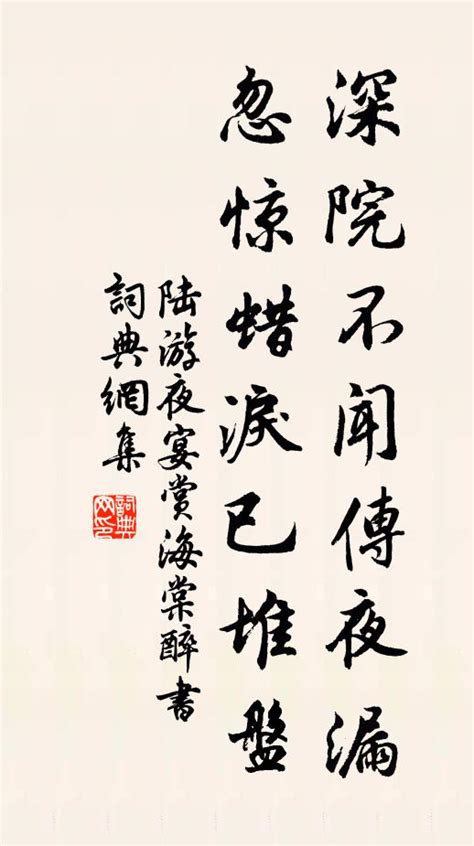 深院不闻傳夜漏
忽惊蜡淚已堆盤
陆游夜宴赏海棠醉書
詞典網集
詞典
网印